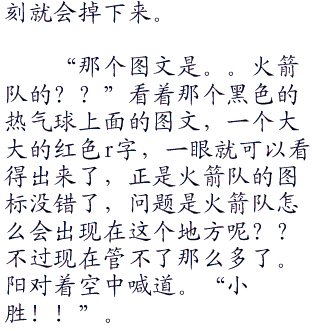 刻就会掉下来。
“那个图文是。。火箭
队的？？”看着那个黑色的
热气球上面的图文，一个大
大的红色r字，一眼就可以看
得出来了，正是火箭队的图
标没错了，问题是火箭队怎
么会出现在这个地方呢？？
不过现在管不了那么多了。
阳对着空中喊道。“小
胜！！”。